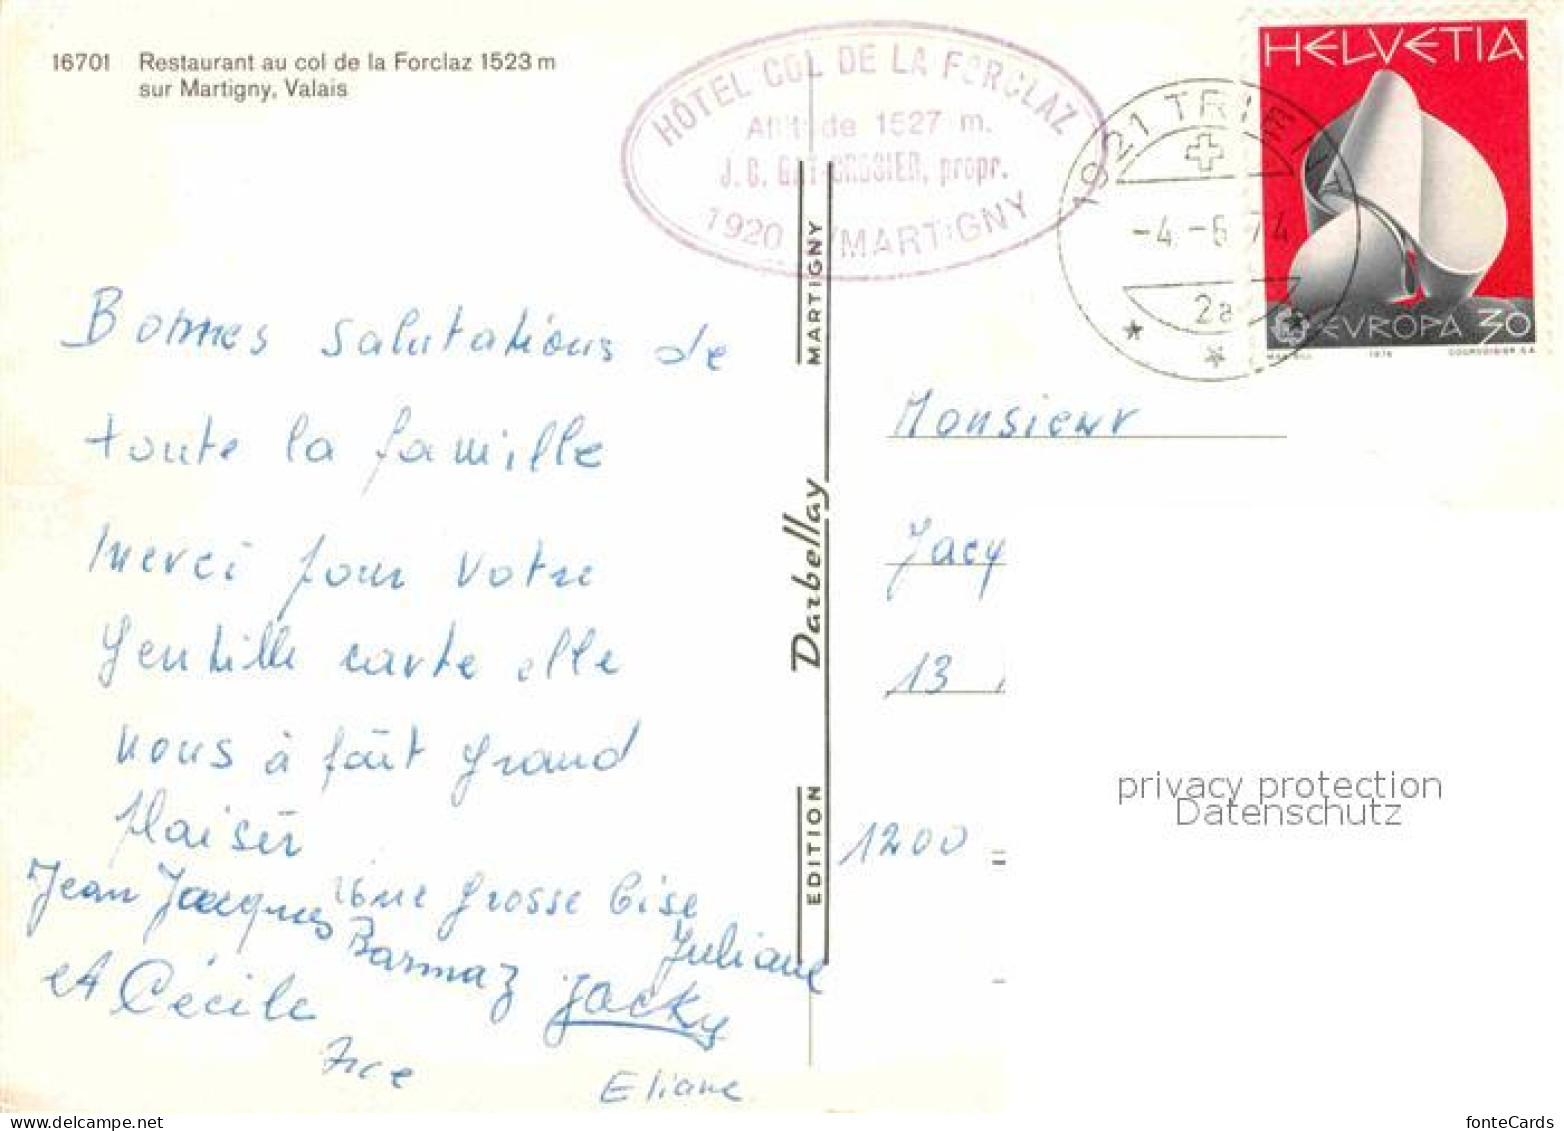 16701 Restaurant au col de la Forclaz 1523 m
sur Martigny, Valais
HÔTEL COL DE LA FORCLAZ
Altitude 1527 m.
J. C. GAY-CROSIER, propr.
1920 MARTIGNY
1921 TRIENT
-4.-6 74
2a
HELVETIA
EVROPA 30
1974
COURVOISIER S.A.
Bonnes salutations de
toute la famille
merci pour votre
gentille carte elle
nous à fait grand
plaisir
une grosse bise
Jean Jacques
Barmaz
Juliane
et Cécile
Jacky
Eliane
EDITION Darbellay MARTIGNY
Monsieur
Jacq
13
1200
privacy protection
Datenschutz
fonteCards